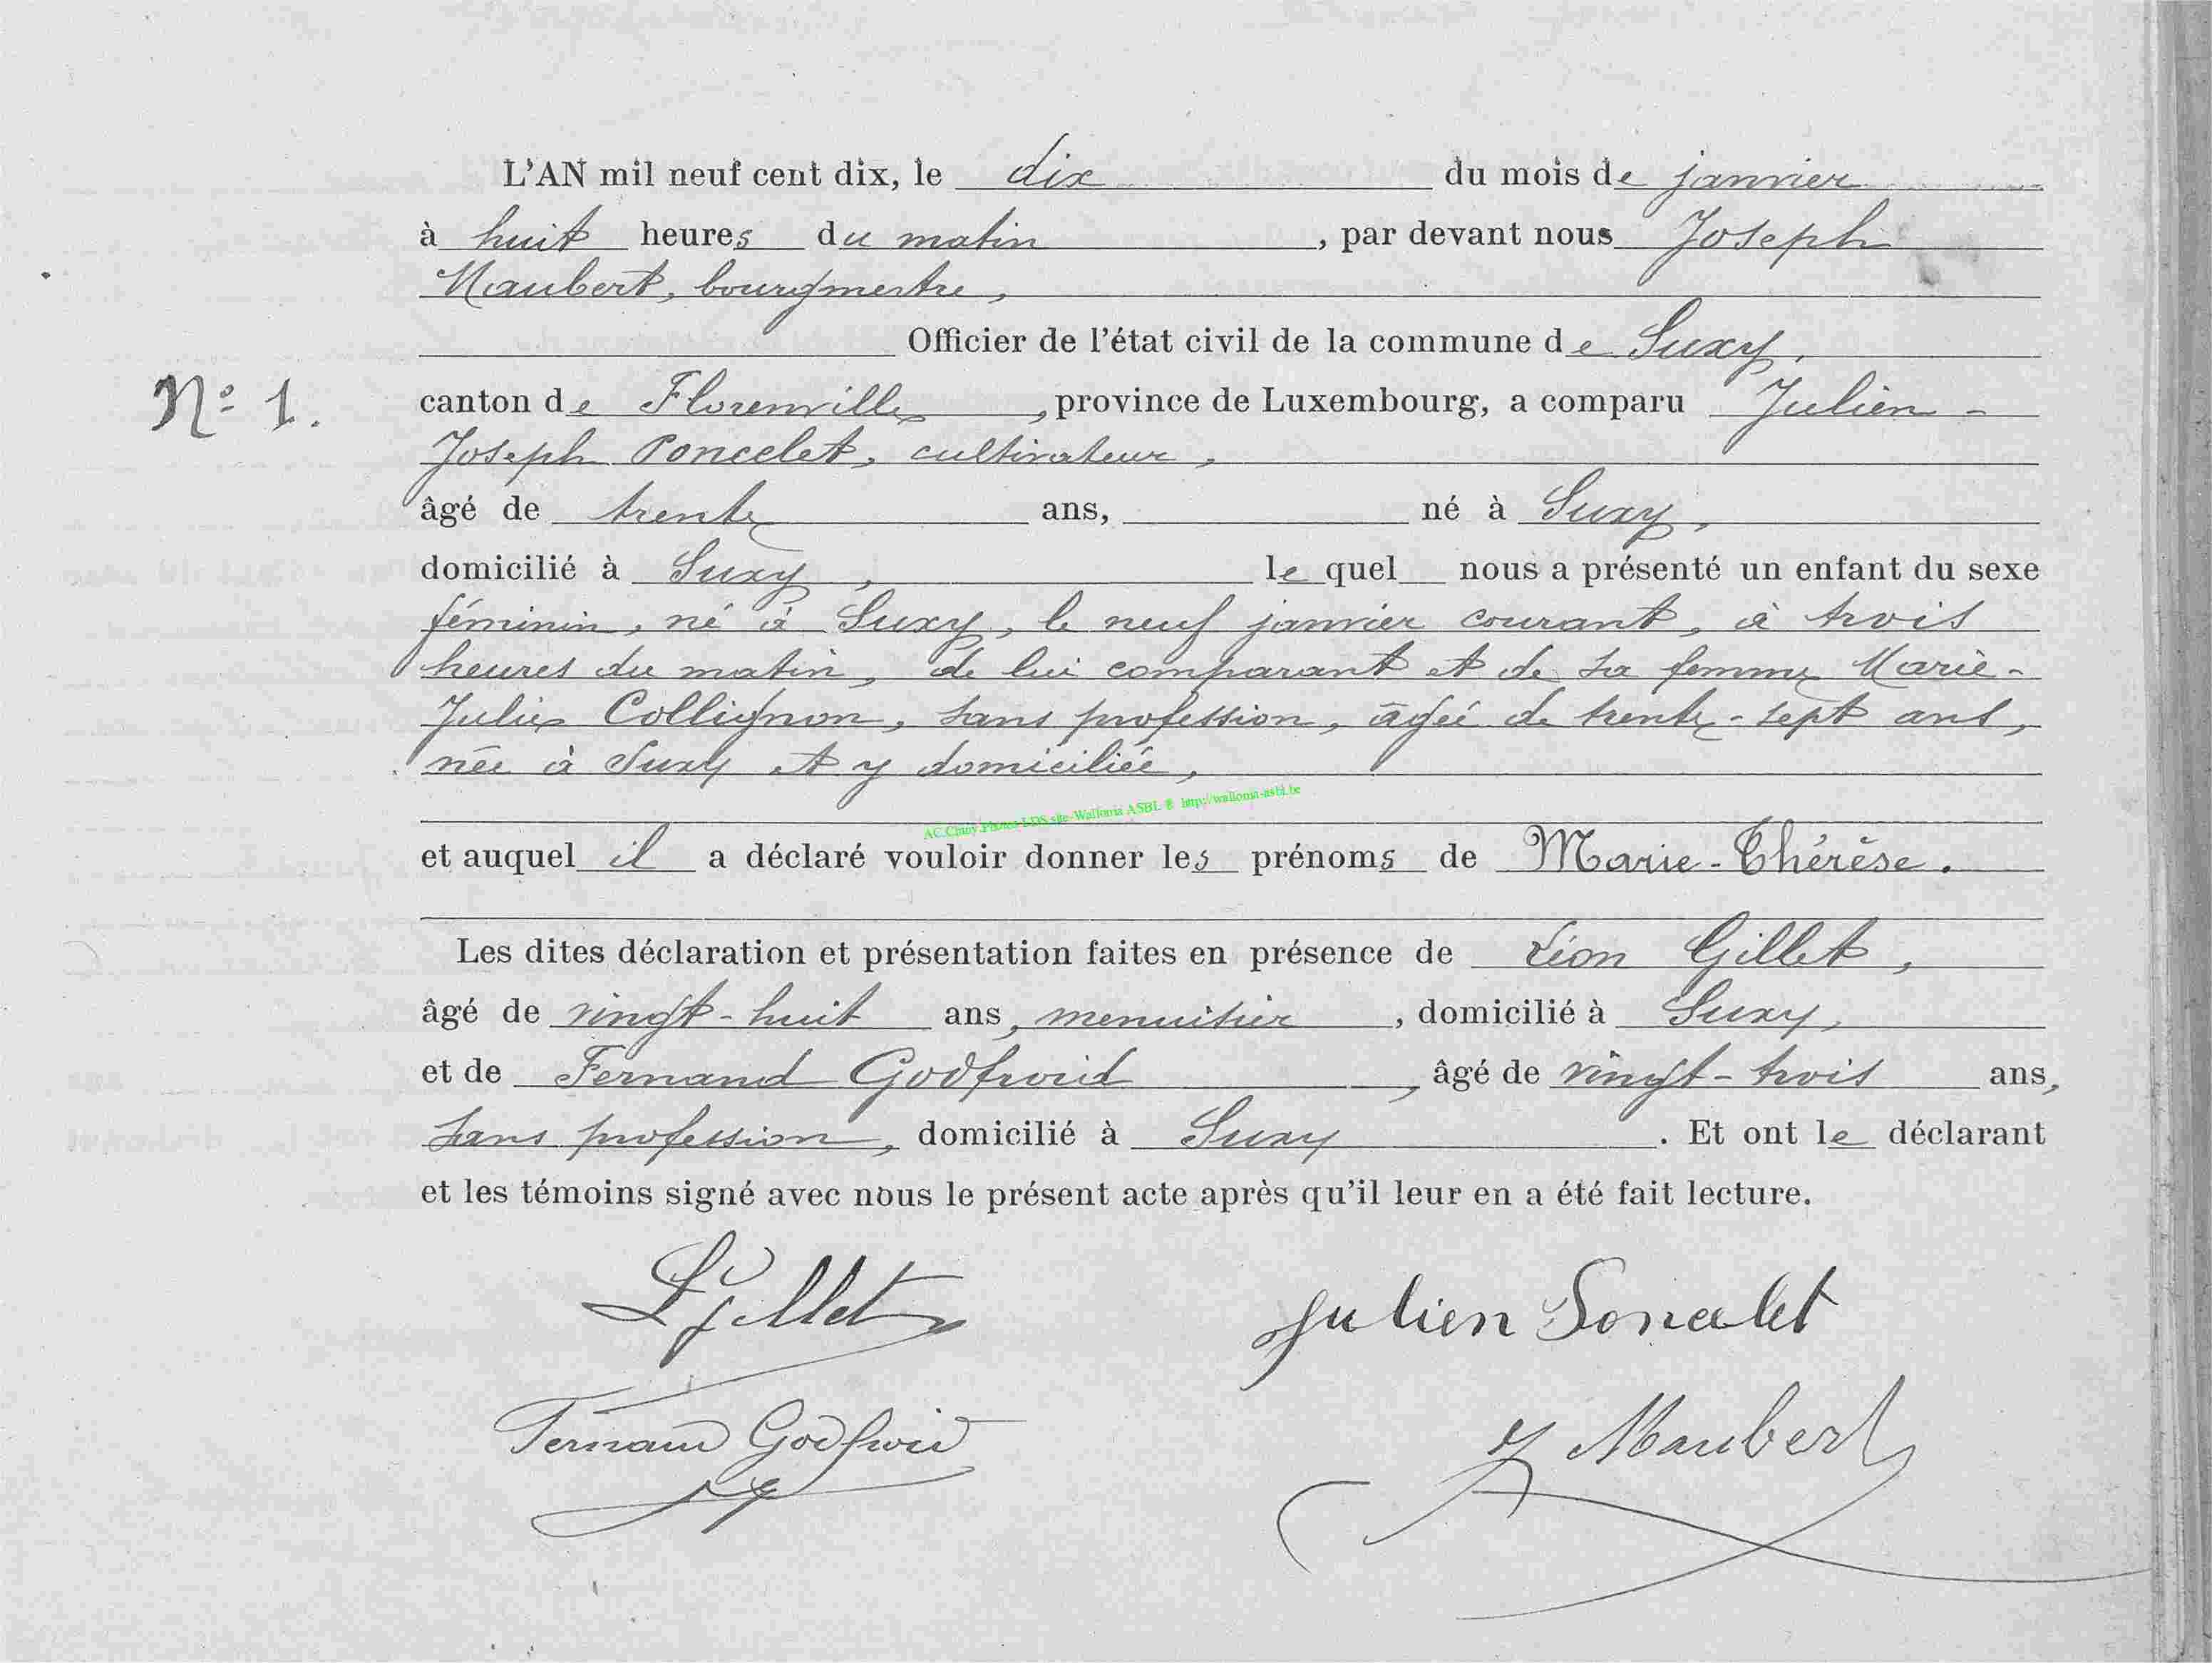 L'AN mil neuf cent dix, le dix du mois de janvier
à huit heures du matin, par devant nous Joseph
Maubert, bourgmestre,
Officier de l'état civil de la commune de Suxy,
N° 1.
canton de Florenville, province de Luxembourg, a comparu Julien-
Joseph Poncelet, cultivateur,
âgé de trente ans, né à Suxy,
domicilié à Suxy, le quel nous a présenté un enfant du sexe
féminin, né à Suxy, le neuf janvier courant, à trois
heures du matin, de lui comparant et de sa femme Marie-
Julie Collignon, sans profession, âgée de trente-sept ans,
née à Suxy et y domiciliée,
AC.Chiny.Photos LDS site-Wallonia ASBL ® http://wallonia-asbl.be
et auquel il a déclaré vouloir donner les prénoms de Marie-Thérèse.
Les dites déclaration et présentation faites en présence de Léon Gillet,
âgé de vingt-huit ans, menuisier, domicilié à Suxy,
et de Fernand Godfroid, âgé de vingt-trois ans,
sans profession, domicilié à Suxy. Et ont le déclarant
et les témoins signé avec nous le présent acte après qu'il leur en a été fait lecture.
L Gillet Julien Poncelet
Fernand Godfroid J Maubert